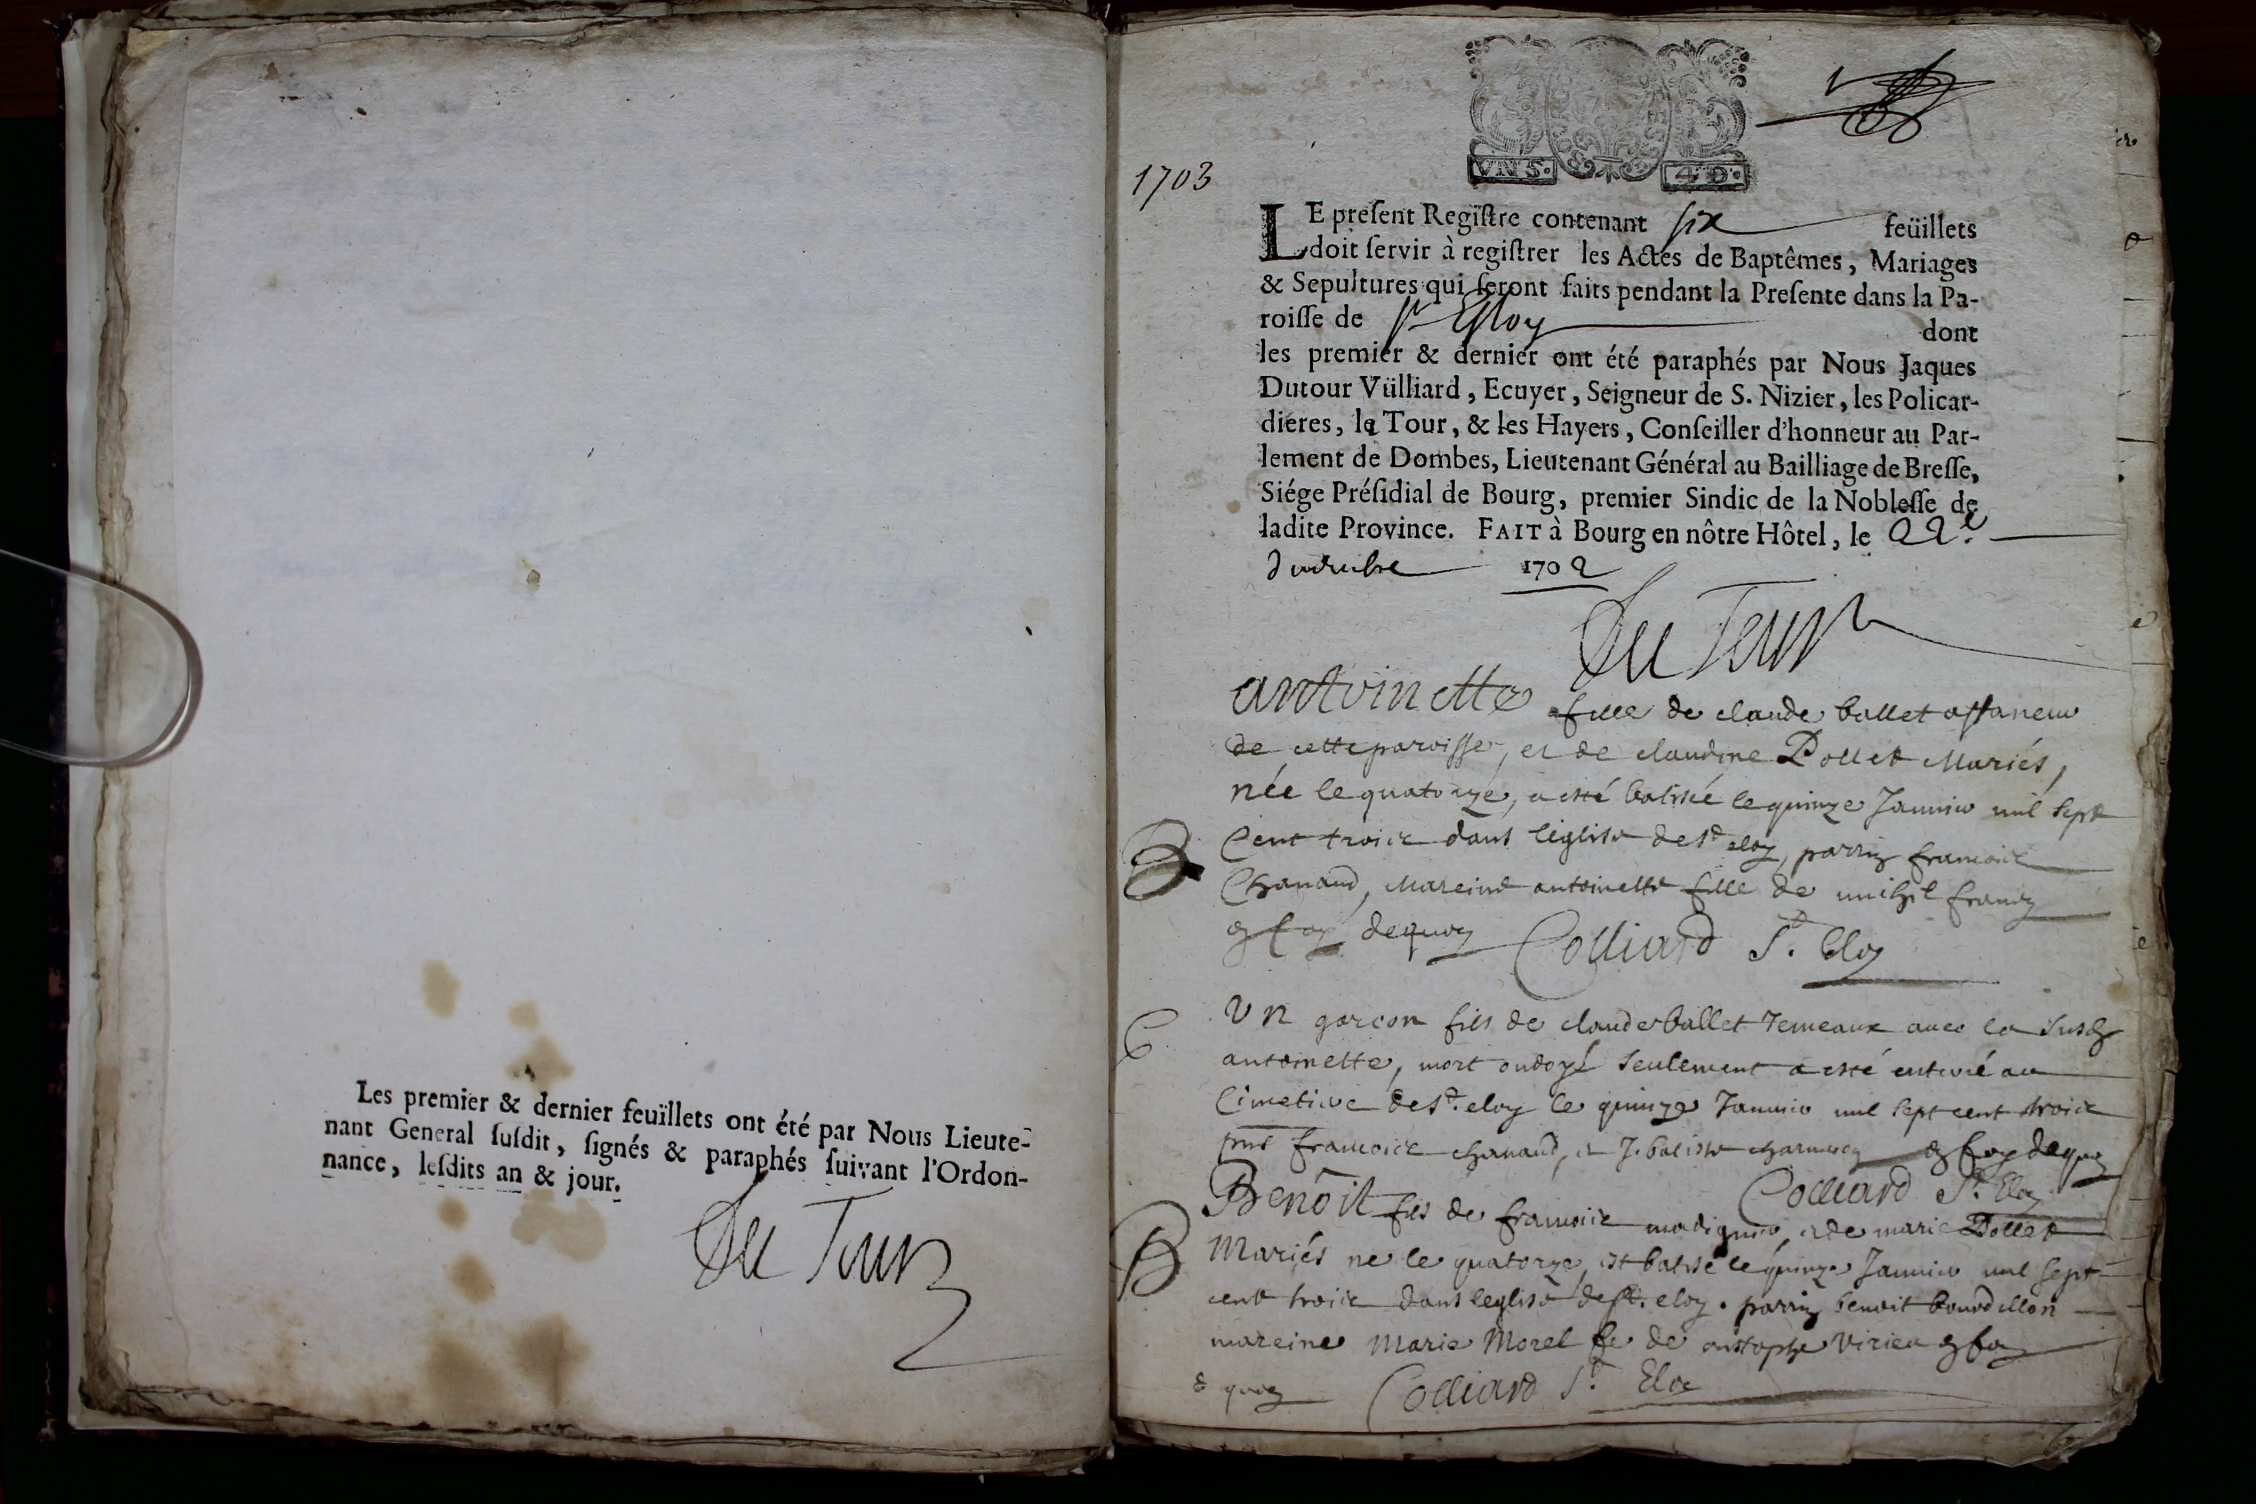 Les premier & dernier feuïllets ont été par Nous Lieute-
nant General ſuſdit, ſignés & paraphés ſuivant l'Ordon-
nance, leſdits an & jour.
Du Tour
1703
VN S. 4 D.
LE preſent Regiſtre contenant six feüillets
doit ſervir à regiſtrer les Actes de Baptêmes, Mariages
& Sepultures qui ſeront faits pendant la Preſente dans la Pa-
roiſſe de st Elloy dont
les premier & dernier ont été paraphés par Nous Jaques
Dutour Vülliard, Ecuyer, Seigneur de S. Nizier, les Policar-
dieres, la Tour, & les Hayers, Conſeiller d'honneur au Par-
lement de Dombes, Lieutenant Général au Bailliage de Breſſe,
Siége Préſidial de Bourg, premier Sindic de la Nobleſſe de
ladite Province. FAIT à Bourg en nôtre Hôtel, le 22e
1702
Du Tour
antoinette fille de claude ballet affaneur
de cette paroisse, et de claudine Pollet Mariés,
née le quatorze, a esté batisée le quinze Janvier mil sept
Cent trois dans l'église de st eloy, parrin francois
B
Chanand, Mareine antoinette fille de
en foy dequoy Colliard St. Eloy
Un garcon fils de claude ballet Jemeaux avec la
antoinette, mort ondoyé seulement a esté enterré au
Cimetiere de st. eloy le quinze Janvier mil sept cent trois
francois chanand, et J. batiste en foy dequoy
Colliard St. Eloy
Benoit fils de francois et de marie Pollet
B
Mariés né le quatorze, est batisé le quinze Janvier mil sept
cent trois dans l'eglise de st. eloy. parrin benoit bourdillon
mareine Marie Morel fe de Virieu en foy
d quoy Colliard St. Eloe